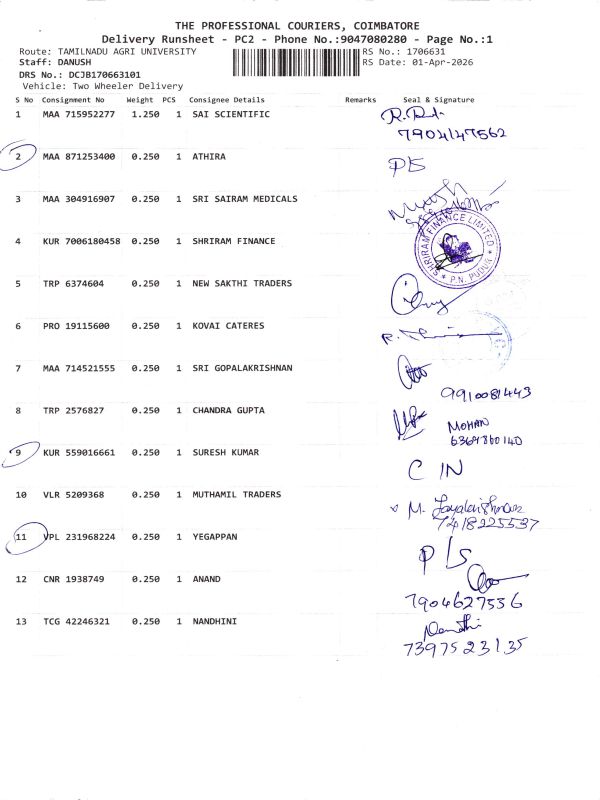 THE PROFESSIONAL COURIERS, COIMBATORE
Delivery Runsheet - PC2 - Phone No.:9047080280 - Page No.:1
Route: TAMILNADU AGRI UNIVERSITY RS No.: 1706631
Staff: DANUSH RS Date: 01-Apr-2026
DRS No.: DCJB170663101
Vehicle: Two Wheeler Delivery
S No Consignment No Weight PCS Consignee Details Remarks Seal & Signature
1 MAA 715952277 1.250 1 SAI SCIENTIFIC
7904147562
2 MAA 871253400 0.250 1 ATHIRA
3 MAA 304916907 0.250 1 SRI SAIRAM MEDICALS
4 KUR 7006180458 0.250 1 SHRIRAM FINANCE
SHRIRAM FINANCE LIMITED * P.N. PUDUR *
5 TRP 6374604 0.250 1 NEW SAKTHI TRADERS
6 PRO 19115600 0.250 1 KOVAI CATERES
7 MAA 714521555 0.250 1 SRI GOPALAKRISHNAN
9910081443
8 TRP 2576827 0.250 1 CHANDRA GUPTA MOHAN
9 KUR 559016661 0.250 1 SURESH KUMAR C IN
10 VLR 5209368 0.250 1 MUTHAMIL TRADERS M. Jayalakshman
7418225537
11 VPL 231968224 0.250 1 YEGAPPAN
12 CNR 1938749 0.250 1 ANAND
7904627556
13 TCG 42246321 0.250 1 NANDHINI Nandhi
7397523135